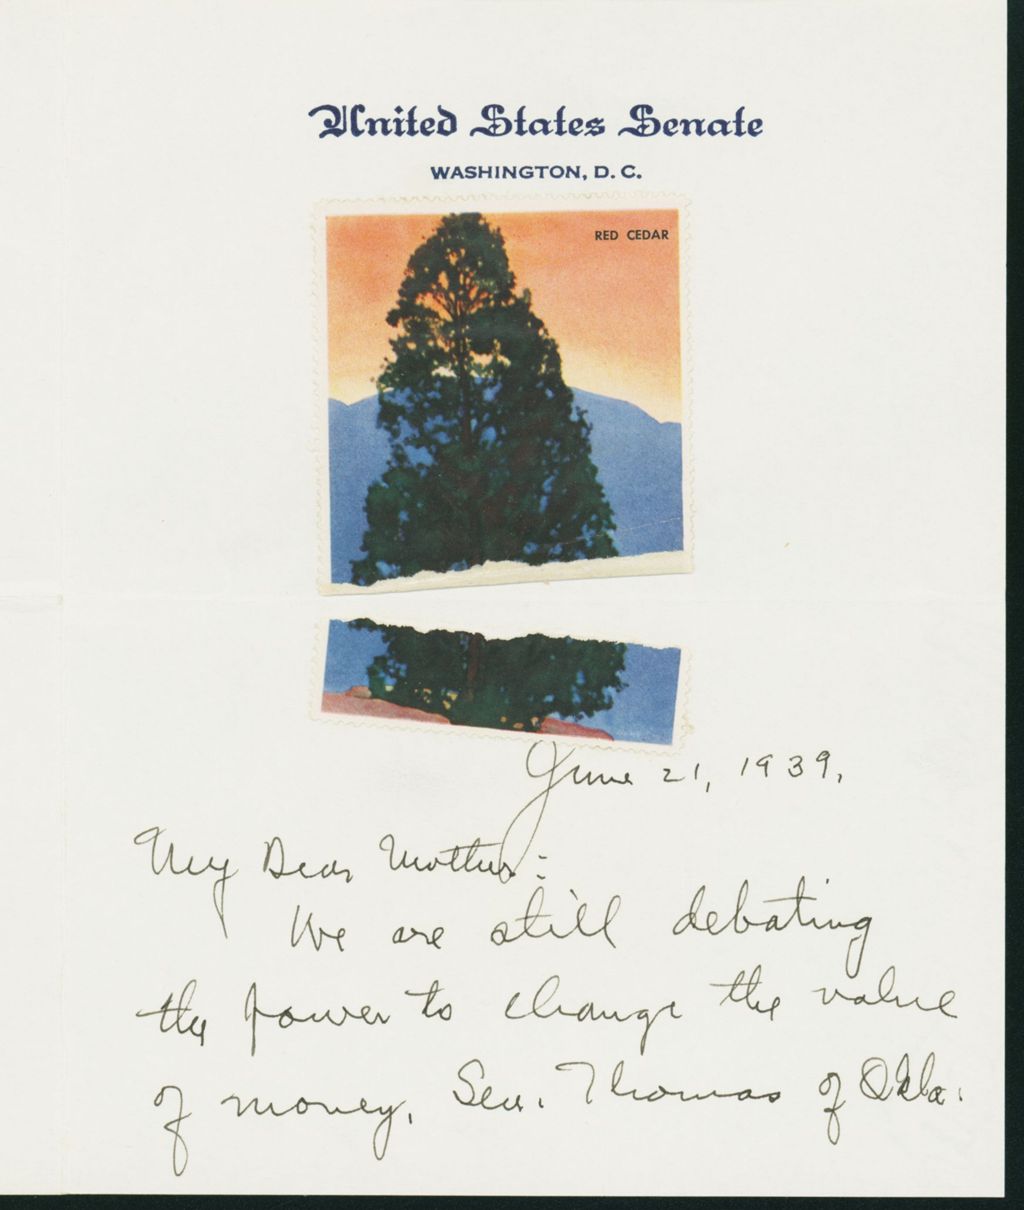 United States Senate
WASHINGTON, D. C.
RED CEDAR
June 21, 1939.
My Dear Mother:
We are still debating
the power to change the value
of money. Sen. Thomas of Okla.